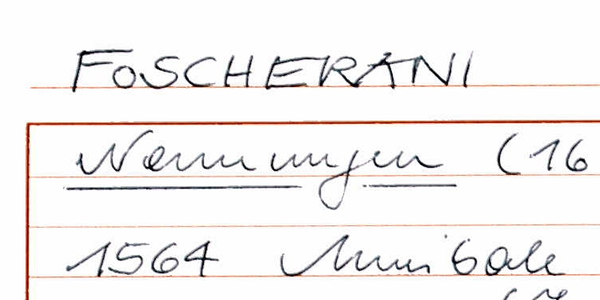 FOSCHERANI
Nennungen (16
1564 Annibale